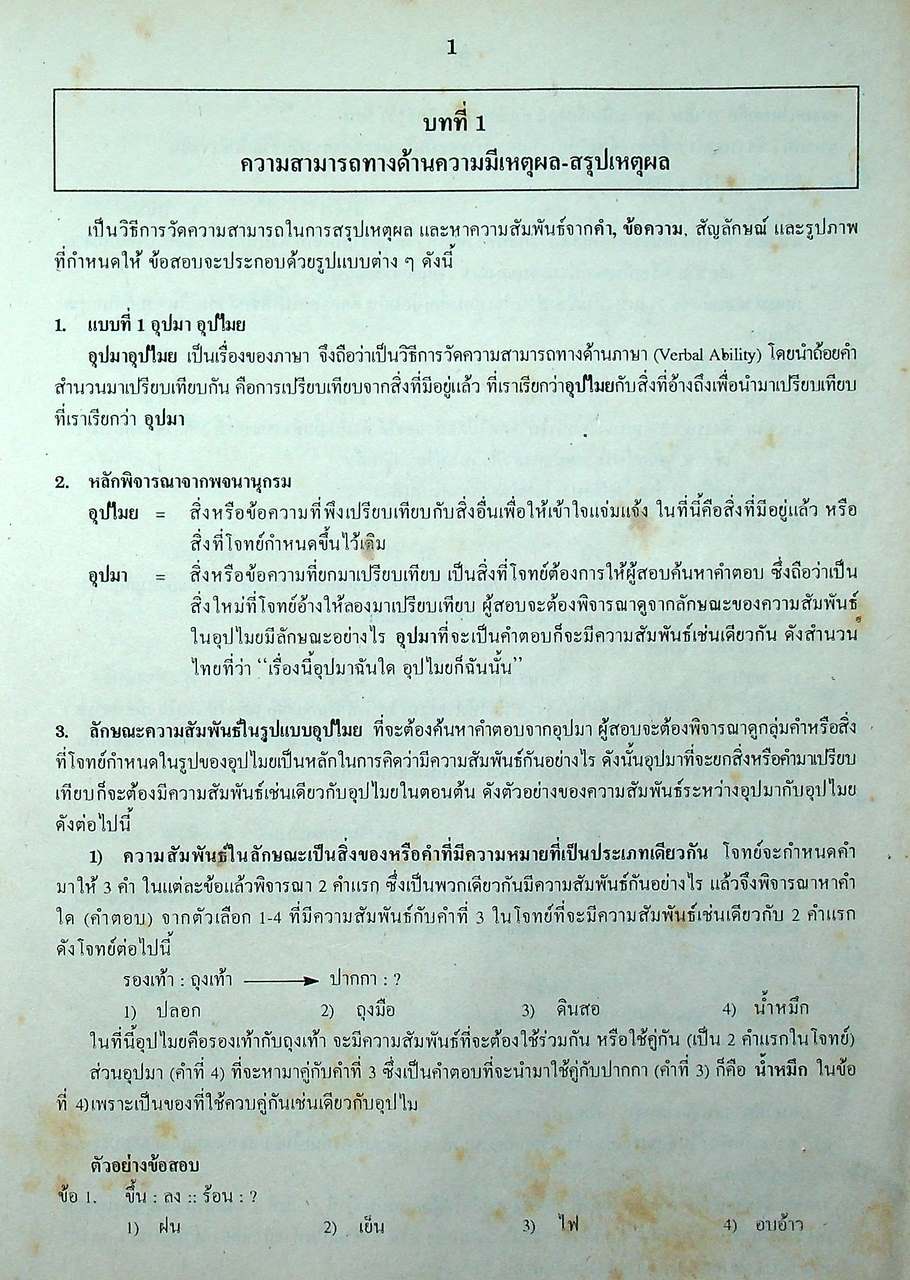 1
บทที่ 1
ความสามารถทางด้านความมีเหตุผล-สรุปเหตุผล
เป็นวิธีการวัดความสามารถในการสรุปเหตุผล และหาความสัมพันธ์จากคำ, ข้อความ, สัญลักษณ์ และรูปภาพ
ที่กำหนดให้ ข้อสอบจะประกอบด้วยรูปแบบต่าง ๆ ดังนี้
1. แบบที่ 1 อุปมา อุปไมย
อุปมาอุปไมย เป็นเรื่องของภาษา จึงถือว่าเป็นวิธีการวัดความสามารถทางด้านภาษา (Verbal Ability) โดยนำถ้อยคำ
สำนวนมาเปรียบเทียบกัน คือการเปรียบเทียบจากสิ่งที่มีอยู่แล้ว ที่เราเรียกว่าอุปไมยกับสิ่งที่อ้างถึงเพื่อนำมาเปรียบเทียบ
ที่เราเรียกว่า อุปมา
2. หลักพิจารณาจากพจนานุกรม
อุปไมย = สิ่งหรือข้อความที่พึงเปรียบเทียบกับสิ่งอื่นเพื่อให้เข้าใจแจ่มแจ้ง ในที่นี้คือสิ่งที่มีอยู่แล้ว หรือ
สิ่งที่โจทย์กำหนดขึ้นไว้เดิม
อุปมา = สิ่งหรือข้อความที่ยกมาเปรียบเทียบ เป็นสิ่งที่โจทย์ต้องการให้ผู้สอบค้นหาคำตอบ ซึ่งถือว่าเป็น
สิ่งใหม่ที่โจทย์อ้างให้ลองมาเปรียบเทียบ ผู้สอบจะต้องพิจารณาดูจากลักษณะของความสัมพันธ์
ในอุปไมยมีลักษณะอย่างไร อุปมาที่จะเป็นคำตอบก็จะมีความสัมพันธ์เช่นเดียวกัน ดังสำนวน
ไทยที่ว่า “เรื่องนี้อุปมาฉันใด อุปไมยก็ฉันนั้น”
3. ลักษณะความสัมพันธ์ในรูปแบบอุปไมย ที่จะต้องค้นหาคำตอบจากอุปมา ผู้สอบจะต้องพิจารณาดูกลุ่มคำหรือสิ่ง
ที่โจทย์กำหนดในรูปของอุปไมยเป็นหลักในการคิดว่ามีความสัมพันธ์กันอย่างไร ดังนั้นอุปมาที่จะยกสิ่งหรือคำมาเปรียบ
เทียบก็จะต้องมีความสัมพันธ์เช่นเดียวกับอุปไมยในตอนต้น ดังตัวอย่างของความสัมพันธ์ระหว่างอุปมากับอุปไมย
ดังต่อไปนี้
1) ความสัมพันธ์ในลักษณะเป็นสิ่งของหรือคำที่มีความหมายที่เป็นประเภทเดียวกัน โจทย์จะกำหนดคำ
มาให้ 3 คำ ในแต่ละข้อแล้วพิจารณา 2 คำแรก ซึ่งเป็นพวกเดียวกันมีความสัมพันธ์กันอย่างไร แล้วจึงพิจารณาหาคำ
ใด (คำตอบ) จากตัวเลือก 1-4 ที่มีความสัมพันธ์กับคำที่ 3 ในโจทย์ที่จะมีความสัมพันธ์เช่นเดียวกับ 2 คำแรก
ดังโจทย์ต่อไปนี้
รองเท้า : ถุงเท้า ⟶ ปากกา : ?
1) ปลอก 2) ถุงมือ 3) ดินสอ 4) น้ำหมึก
ในที่นี้อุปไมยคือรองเท้ากับถุงเท้า จะมีความสัมพันธ์ที่จะต้องใช้ร่วมกัน หรือใช้คู่กัน (เป็น 2 คำแรกในโจทย์)
ส่วนอุปมา (คำที่ 4) ที่จะหามาคู่กับคำที่ 3 ซึ่งเป็นคำตอบที่จะนำมาใช้คู่กับปากกา (คำที่ 3) ก็คือ น้ำหมึก ในข้อ
ที่ 4)เพราะเป็นของที่ใช้ควบคู่กันเช่นเดียวกับอุปไม
ตัวอย่างข้อสอบ
ข้อ 1. ขึ้น : ลง :: ร้อน : ?
1) ฝน 2) เย็น 3) ไฟ 4) อบอ้าว